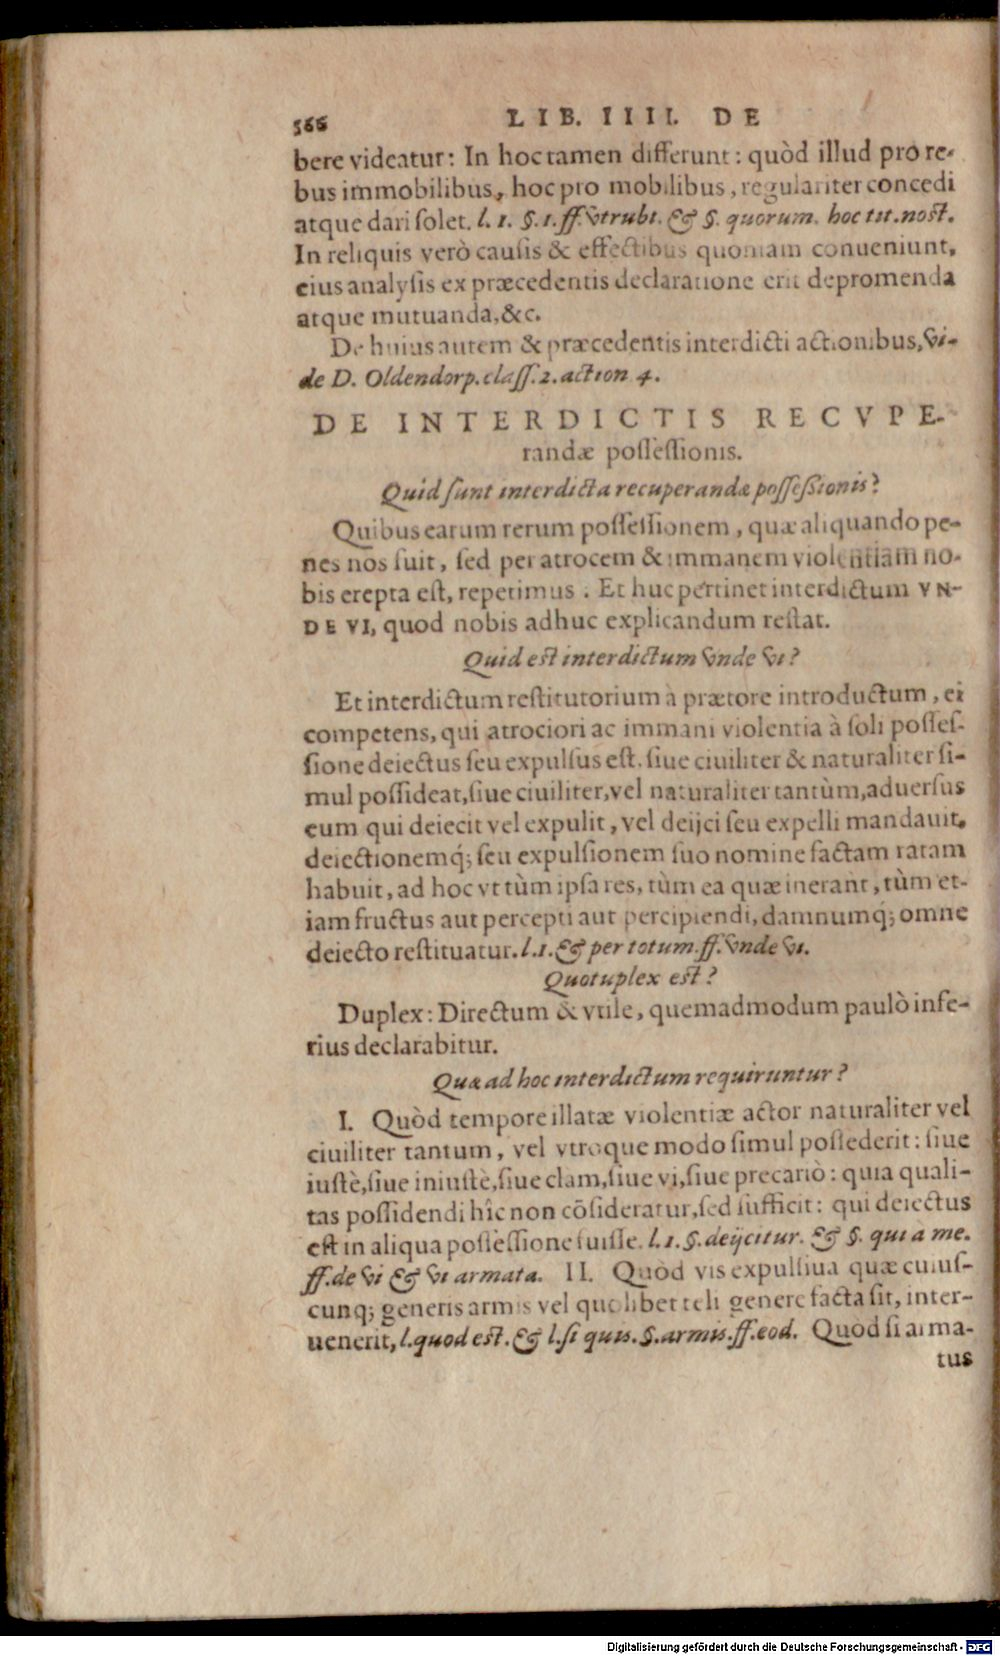 566 LIB. IIII. DE
bere videatur: In hoc tamen differunt: quòd illud pro re-
bus immobilibus, hoc pro mobilibus, regulariter concedi
atque dari ſolet. l. 1. §. 1. ff. vtrubi. & §. quorum. hoc tit. noſt.
In reliquis verò cauſis & effectibus quoniam conueniunt,
eius analyſis ex præcedentis declaratione erit depromenda
atque mutuanda, &c.
De huius autem & præcedentis interdicti actionibus, vi-
de D. Oldendorp. claſſ. 2. action 4.
DE INTERDICTIS RECVPE-
randæ poſſeſſionis.
Quid ſunt interdicta recuperandæ poſſeſsionis?
Quibus earum rerum poſſeſſionem, quæ aliquando pe-
nes nos fuit, ſed per atrocem & immanem violentiam no-
bis erepta eſt, repetimus. Et huc pertinet interdictum VN-
DE VI, quod nobis adhuc explicandum reſtat.
Quid eſt interdictum vnde vi?
Et interdictum reſtitutorium à prætore introductum, ei
competens, qui atrociori ac immani violentia à ſoli poſſeſ-
ſione deiectus ſeu expulſus eſt, ſiue ciuiliter & naturaliter ſi-
mul poſſideat, ſiue ciuiliter, vel naturaliter tantùm, aduerſus
eum qui deiecit vel expulit, vel deijci ſeu expelli mandauit,
deiectionemq́; ſeu expulſionem ſuo nomine factam ratam
habuit, ad hoc vt tùm ipſa res, tùm ea quæ inerant, tùm et-
iam fructus aut percepti aut percipiendi, damnumq́; omne
deiecto reſtituatur. l. 1. & per totum. ff. vnde vi.
Quotuplex eſt?
Duplex: Directum & vtile, quemadmodum paulò infe-
rius declarabitur.
Quæ ad hoc interdictum requiruntur?
I. Quòd tempore illatæ violentiæ actor naturaliter vel
ciuiliter tantum, vel vtroque modo ſimul poſſederit: ſiue
iuſtè, ſiue iniuſtè, ſiue clam, ſiue vi, ſiue precariò: quia quali-
tas poſſidendi hîc non cōſideratur, ſed ſufficit: qui deiectus
eſt in aliqua poſſeſſione fuiſſe. l. 1. §. deijcitur. & §. qui à me.
ff. de vi & vi armata. II. Quòd vis expulſiua quæ cuiuſ-
cunq; generis armis vel quolibet teli genere facta ſit, inter-
uenerit, l. quod eſt. & l. ſi quis. §. armis. ff. eod. Quòd ſi arma-
tus
Digitalisierung gefördert durch die Deutsche Forschungsgemeinschaft - DFG